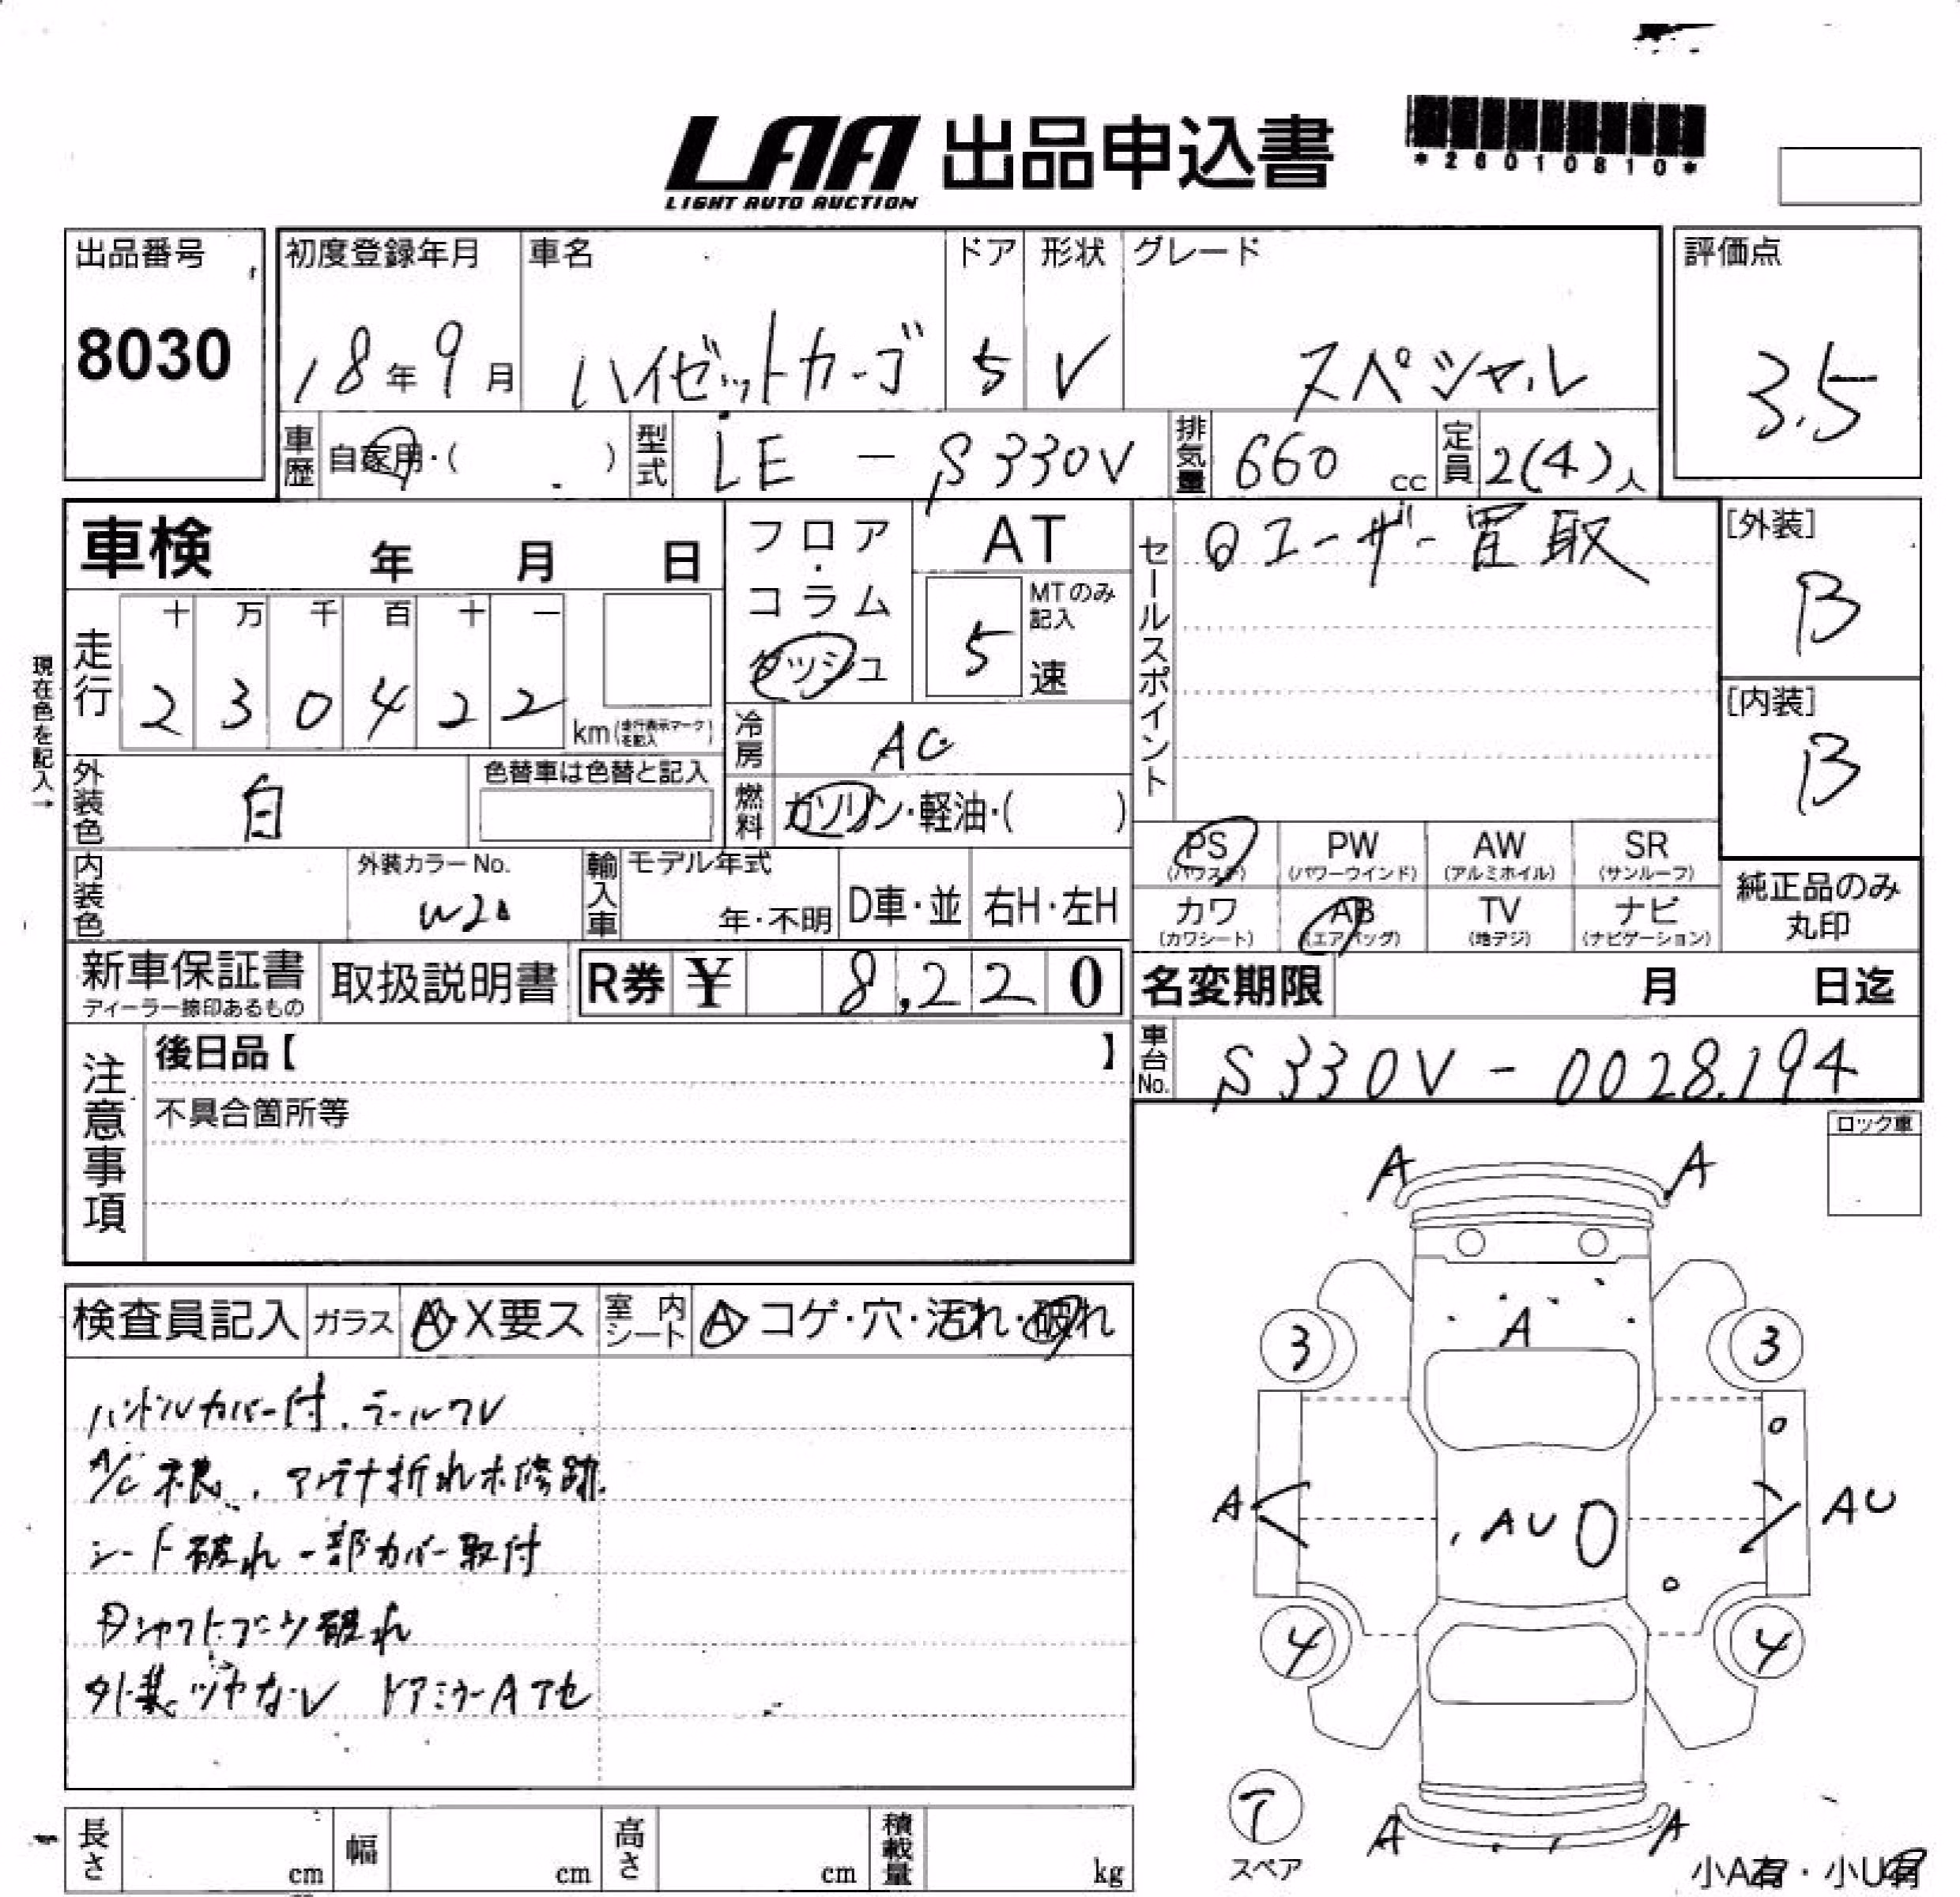 LAA 出品申込書
LIGHT AUTO AUCTION
*26010810*
出品番号
8030
初度登録年月 車名 ドア 形状 グレード
18年9月 ハイゼットカーゴ 5 V スペシャル
評価点
3.5
車歴 自家用・( ) 型式 LE - S330V 排気量 660 cc 定員 2(4)人
車検 年 月 日
フロア・コラム ダッシュ
AT
MTのみ記入
5 速
セールスポイント
ユーザー買取
[外装]
B
[内装]
B
現在色を記入→
走行
十 万 千 百 十 一
2 3 0 4 2 2 km (走行表示マークを記入)
冷房 AC
燃料 ガソリン・軽油・( )
外装色 白 色替車は色替と記入
内装色 外装カラーNo.
輸入車 モデル年式 年・不明 D車・並 右H・左H
PS (パワステ) PW (パワーウインド) AW (アルミホイル) SR (サンルーフ)
カワ (カワシート) AB (エアバッグ) TV (地デジ) ナビ (ナビゲーション)
純正品のみ丸印
新車保証書 ディーラー捺印あるもの 取扱説明書 R券 ¥ 8,220
名変期限 月 日迄
車台No. S330V-0028194
注意事項
後日品【 】
不具合箇所等
ロック車
検査員記入 ガラス A・X要ス 室内シート A・コゲ・穴・汚れ・破れ
ハンドルカバー付、テールワレ
A/C不良、アンテナ折れ
シート破れ一部カバー取付
Dシャフトブーツ破れ
外装ツヤなし ドアミラーAアセ
A A
A
3 3
A AU AU
4 4
A A
スペア
小A有・小U有
長さ cm 幅 cm 高さ cm 積載量 kg